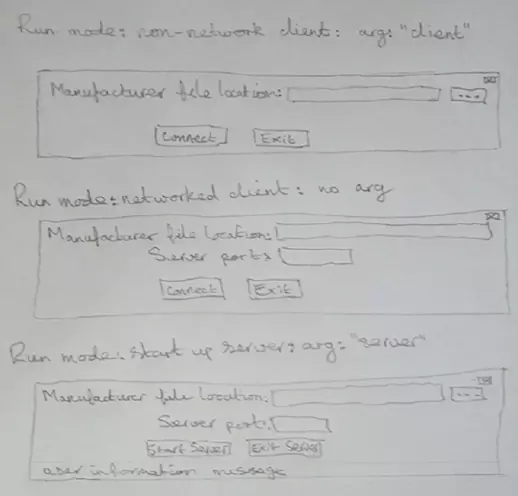 Run mode: non-network client: arg: "client"
Manufacturer file location: ...
Connect Exit
Run mode: networked client: no arg
Manufacturer file location:
Server port:
Connect Exit
Run mode: start up server: arg: "server"
Manufacturer file location: ...
Server port:
Start Server Exit Server
user information message